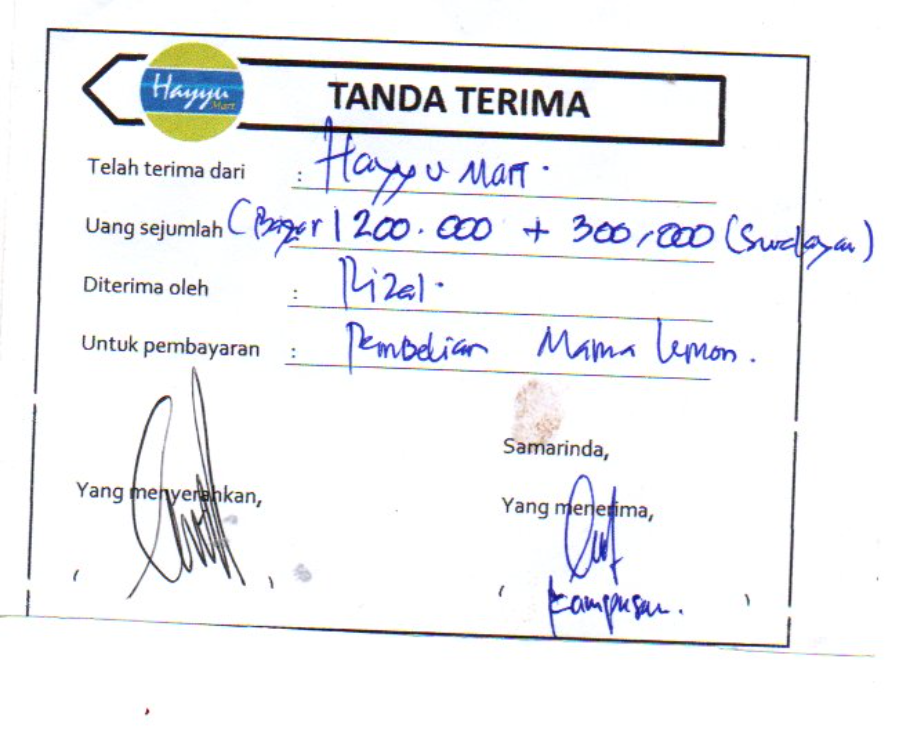 Hayyu
Mart
TANDA TERIMA
Telah terima dari : Hayyu Mart.
Uang sejumlah (1200.000 + 300,000 (
Diterima oleh : Rizal.
Untuk pembayaran : Pembelian Mama Lemon.
Samarinda,
Yang menyerahkan,
Yang menerima,